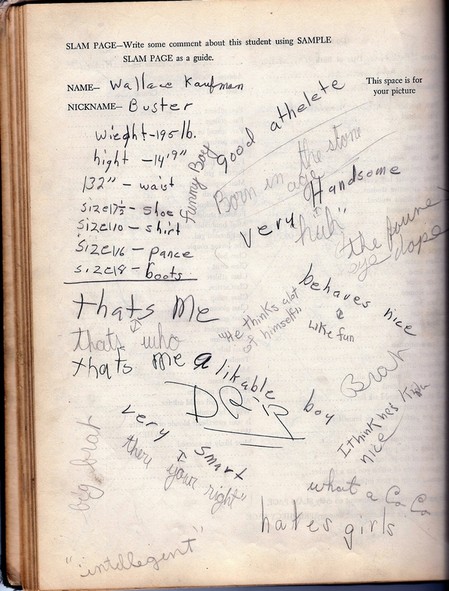 SLAM PAGE—Write some comment about this student using SAMPLE
SLAM PAGE as a guide.
NAME— Wallace Kaufman
This space is for
your picture
NICKNAME— Buster
wieght-195 lb.
hight -14'9"
132" - waist
size 17½ - shoe
size 10 - shirt
size 16 - pance
size 18 - boots
Funny Boy
good athelete
Born in the stone
age
very Handsome
"huh"
behaves nice
like fun
"He thinks alot
of himself"
thats me
thats who
thats me a likable
DRIP
boy
Brat
I think hes
nice
very smart
"your right"
big brat
what a Ca Ca
hates girls
"intellegent"